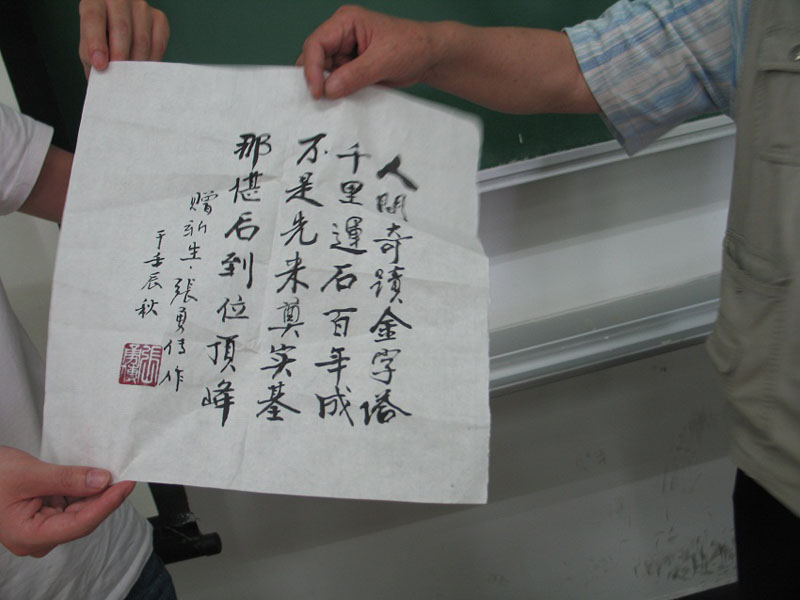 人間奇蹟金字塔
千里運石百年成
不是先来奠实基
那堪后到位頂峰
贈新生·張勇傳作
于壬辰秋
張勇傳